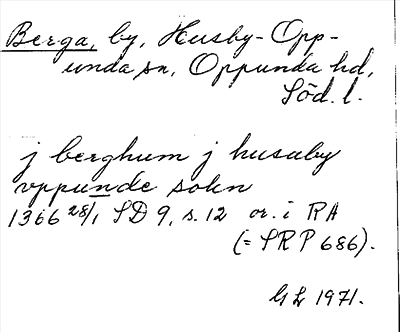 Berga, by, Husby-Opp-
unda sn, Oppunda hd,
Söd. l.
j berghum j husaby
vppunde sokn
1366 28/1 SD 9, s. 12 or. i RA
(= SRP 686).
GL 1971.